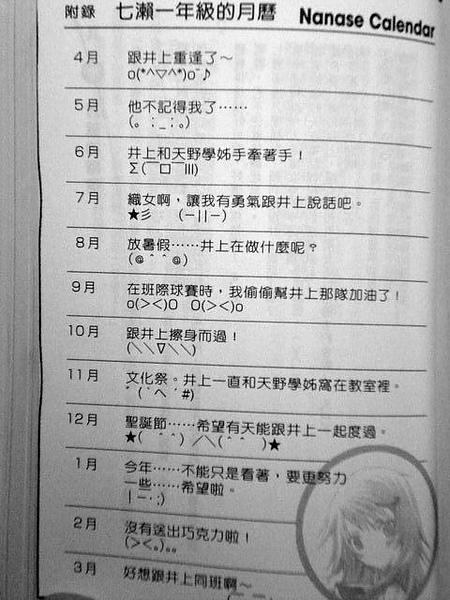 附錄 七瀨一年級的月曆 Nanase Calendar
4月 跟井上重逢了～
o(*^▽^*)o~♪
5月 他不記得我了……
(。；_；。)
6月 井上和天野學姊手牽著手！
Σ(￣ロ￣lll)
7月 織女啊，讓我有勇氣跟井上說話吧。
★彡 (－||－)
8月 放暑假……井上在做什麼呢？
(＠＾＾＠)
9月 在班際球賽時，我偷偷幫井上那隊加油了！
o(><)O O(><)o
10月 跟井上擦身而過！
(＼＼∇＼＼)
11月 文化祭。井上一直和天野學姊窩在教室裡。
12月 聖誕節……希望有天能跟井上一起度過。
★( ＾＾) ／＼(＾＾ )★
1月 今年……不能只是看著，要更努力
一些……希望啦。
2月 沒有送出巧克力啦！
(><。)。。
3月 好想跟井上同班啊～